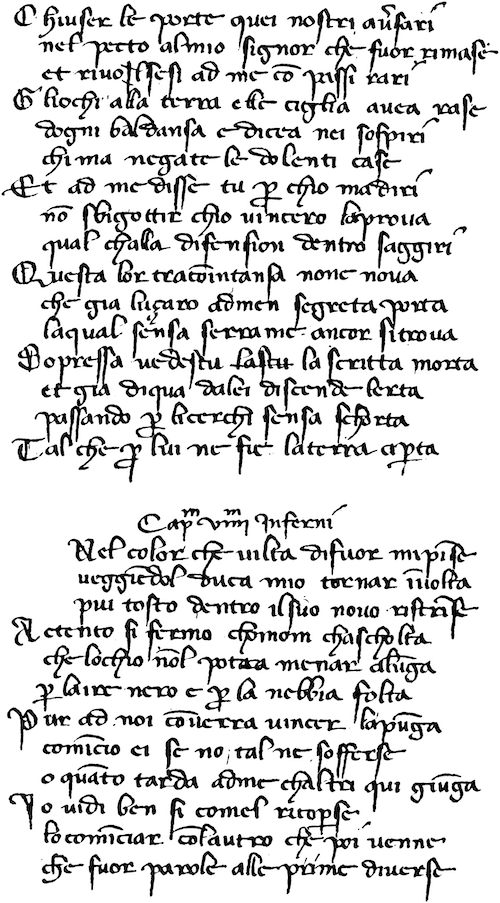 Chiuser le porte quei nostri av̄sari
nel pecto almio signor che fuor rimase
et rivolsesi ad me cō passi rari
Gliochi alla terra elle ciglia avea rase
dogni baldansa e dicea nei sospiri
chi ma negate le dolenti case
Et ad me disse tu ꝑ chio madiri
nō sbigottir chio vincero laprova
qual challa difension dentro saggiri
Questa lor tracōtansa none nova
che gia luçaro admen segreta porta
laqual sensa serrame ancor sitrova
Sopressa vedestu lastu la scritta morta
et gia diqua dalei discende lerta
passando ꝑ licerchi sensa schorta
Tal che ꝑ lui ne fie laterra apta
Capm viiii Inferni
Nel color che vilta difuor mipīse
veggiēdol duca mio tornar īvolta
piu tosto dentro ilsuo novo ristrīse
Attento si fermo chomom chascholta
che lochio nōl potea menar alūga
ꝑ laire nero e ꝑ la nebbia folta
Pur ad noi cōverra vincer lapūga
comīcio ei se no, tal ne sofferse
o quāto tarda adme chaltri qui giūga
Io vidi ben si comel ricopse
lo comīciar cōlautro che poi venne
che fuor parole alle prime diverse